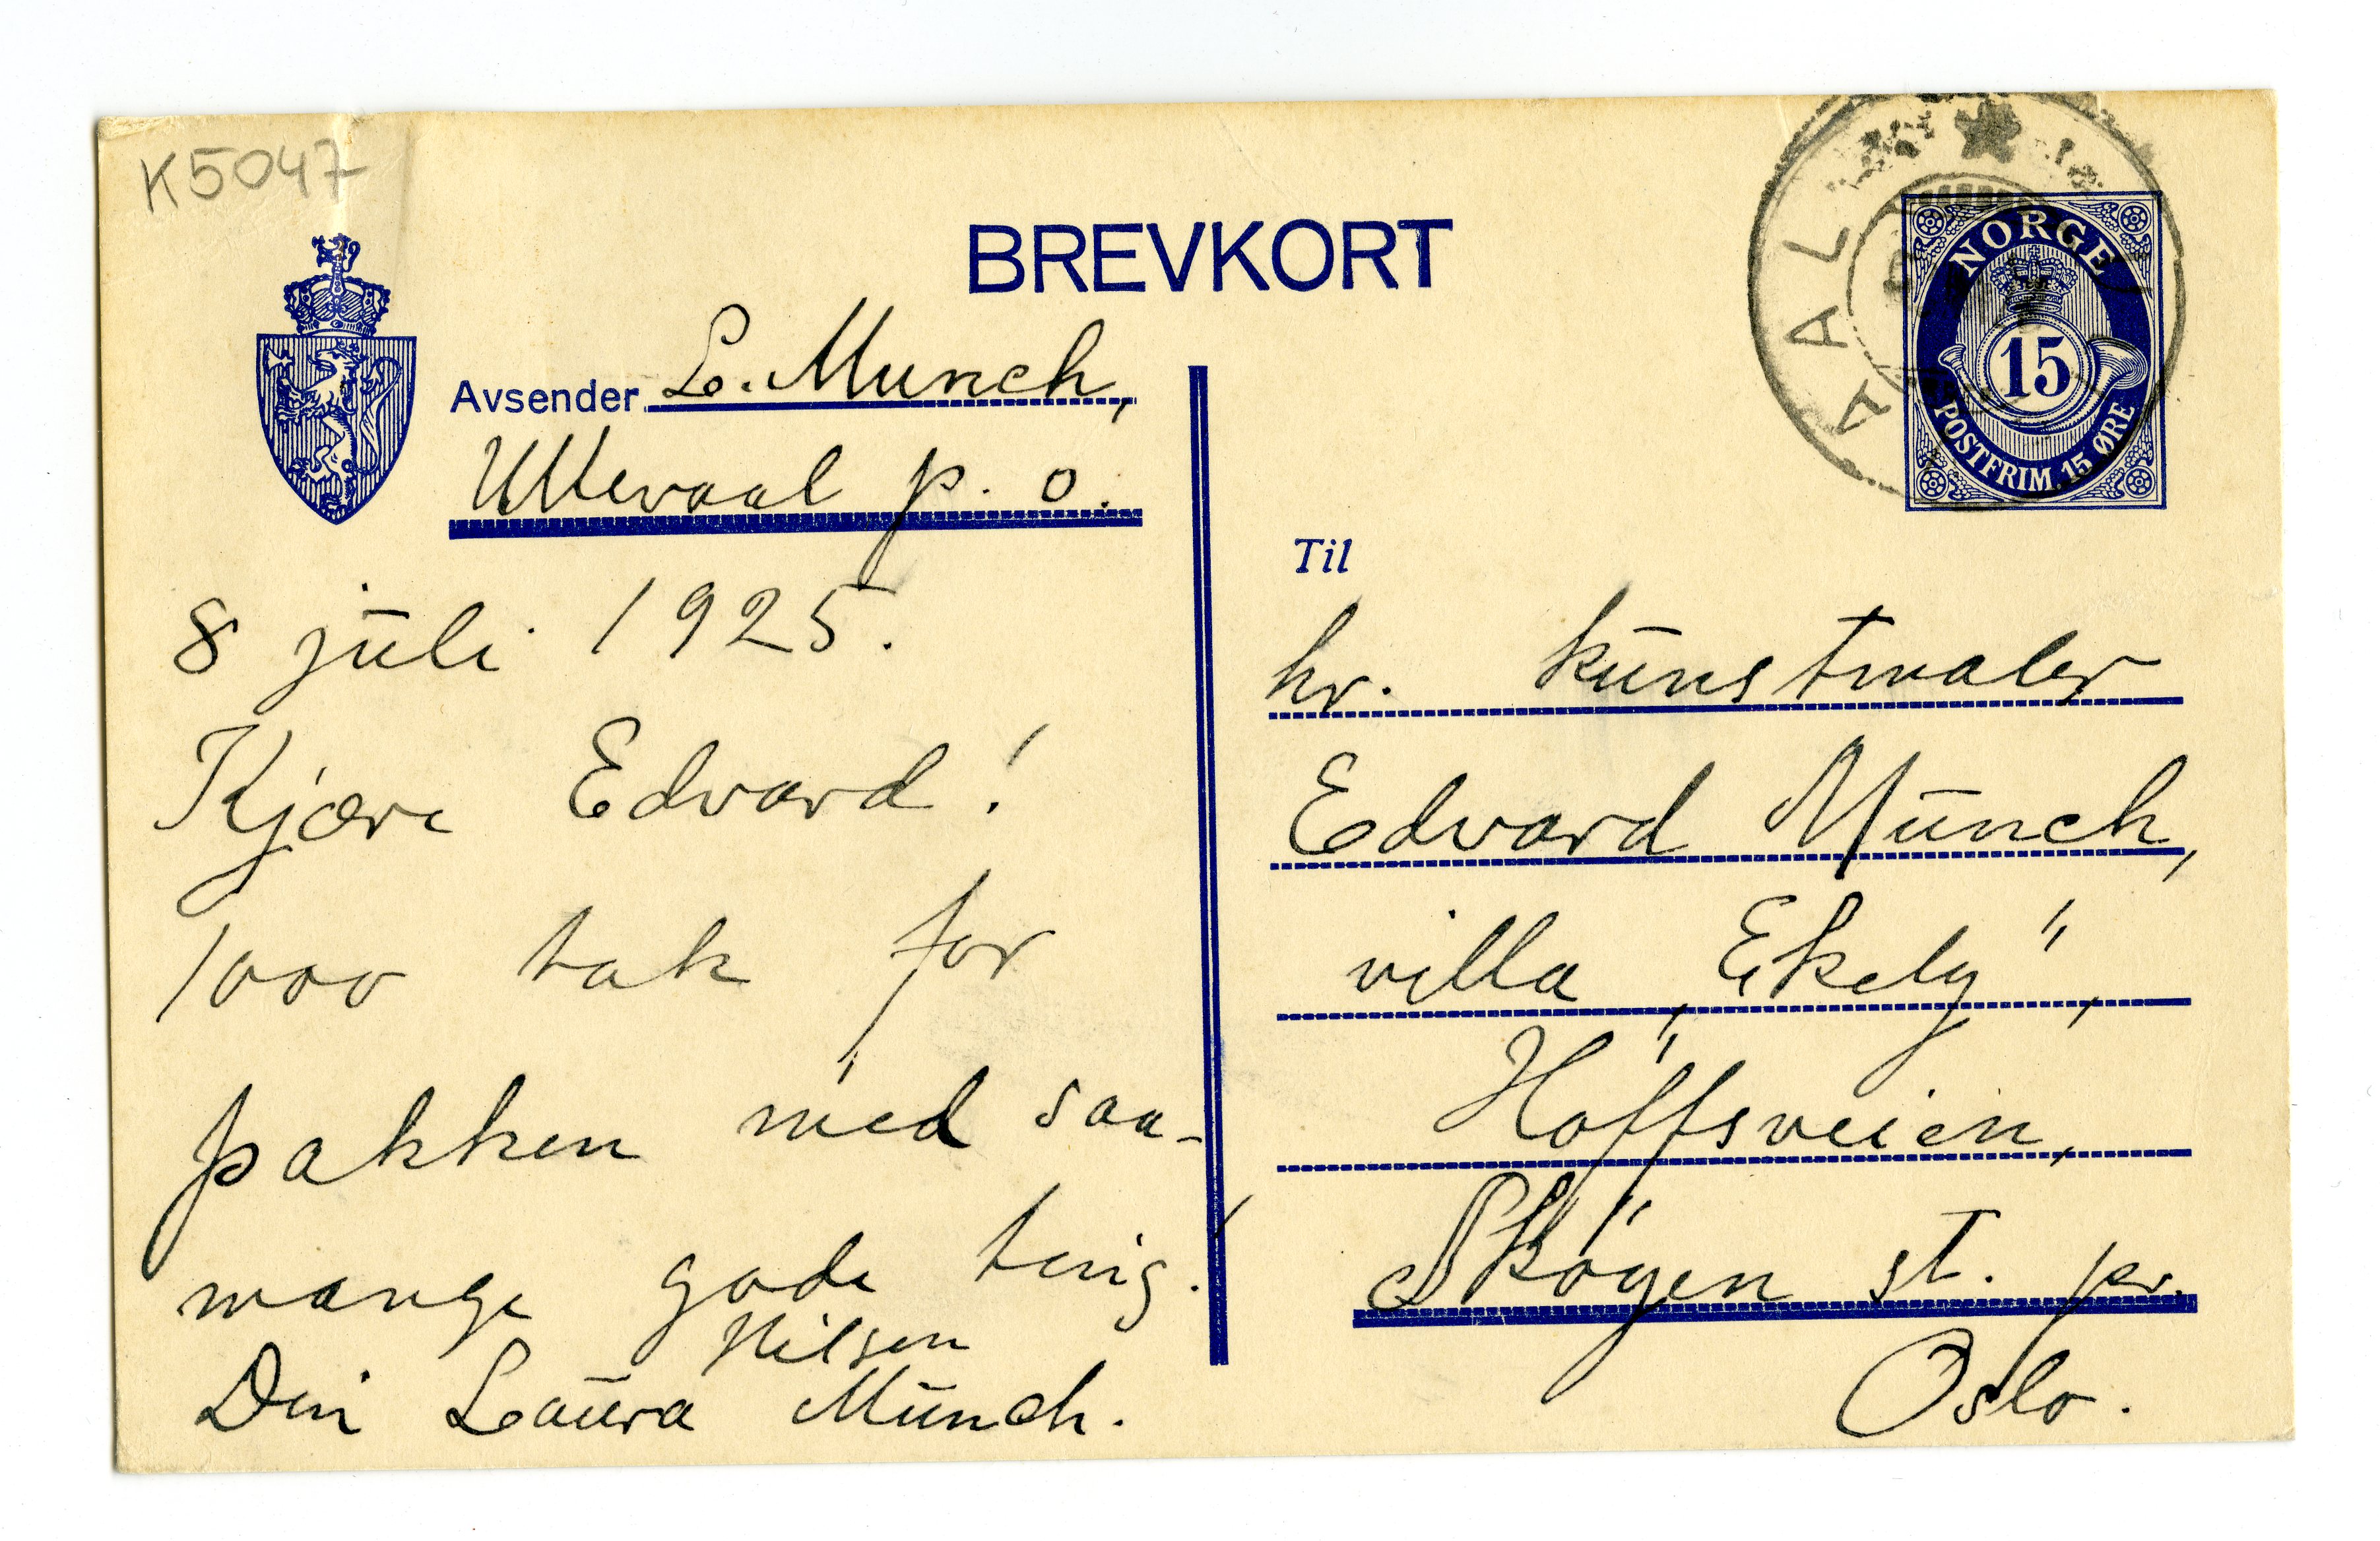 K5047
BREVKORT
Avsender L. Munch,
Ullevaal p. o.
8 juli 1925.
Kjære Edvard!
1000 tak for
pakken med saa-
mange gode ting!
Din Laura Nilsen Munch.
NORGE
15
POSTFRIM. 15 ØRE
Til
hr. kunstmaler
Edvard Munch,
villa „Ekely",
Hoffsveien,
Skøyen st. pr.
Oslo.